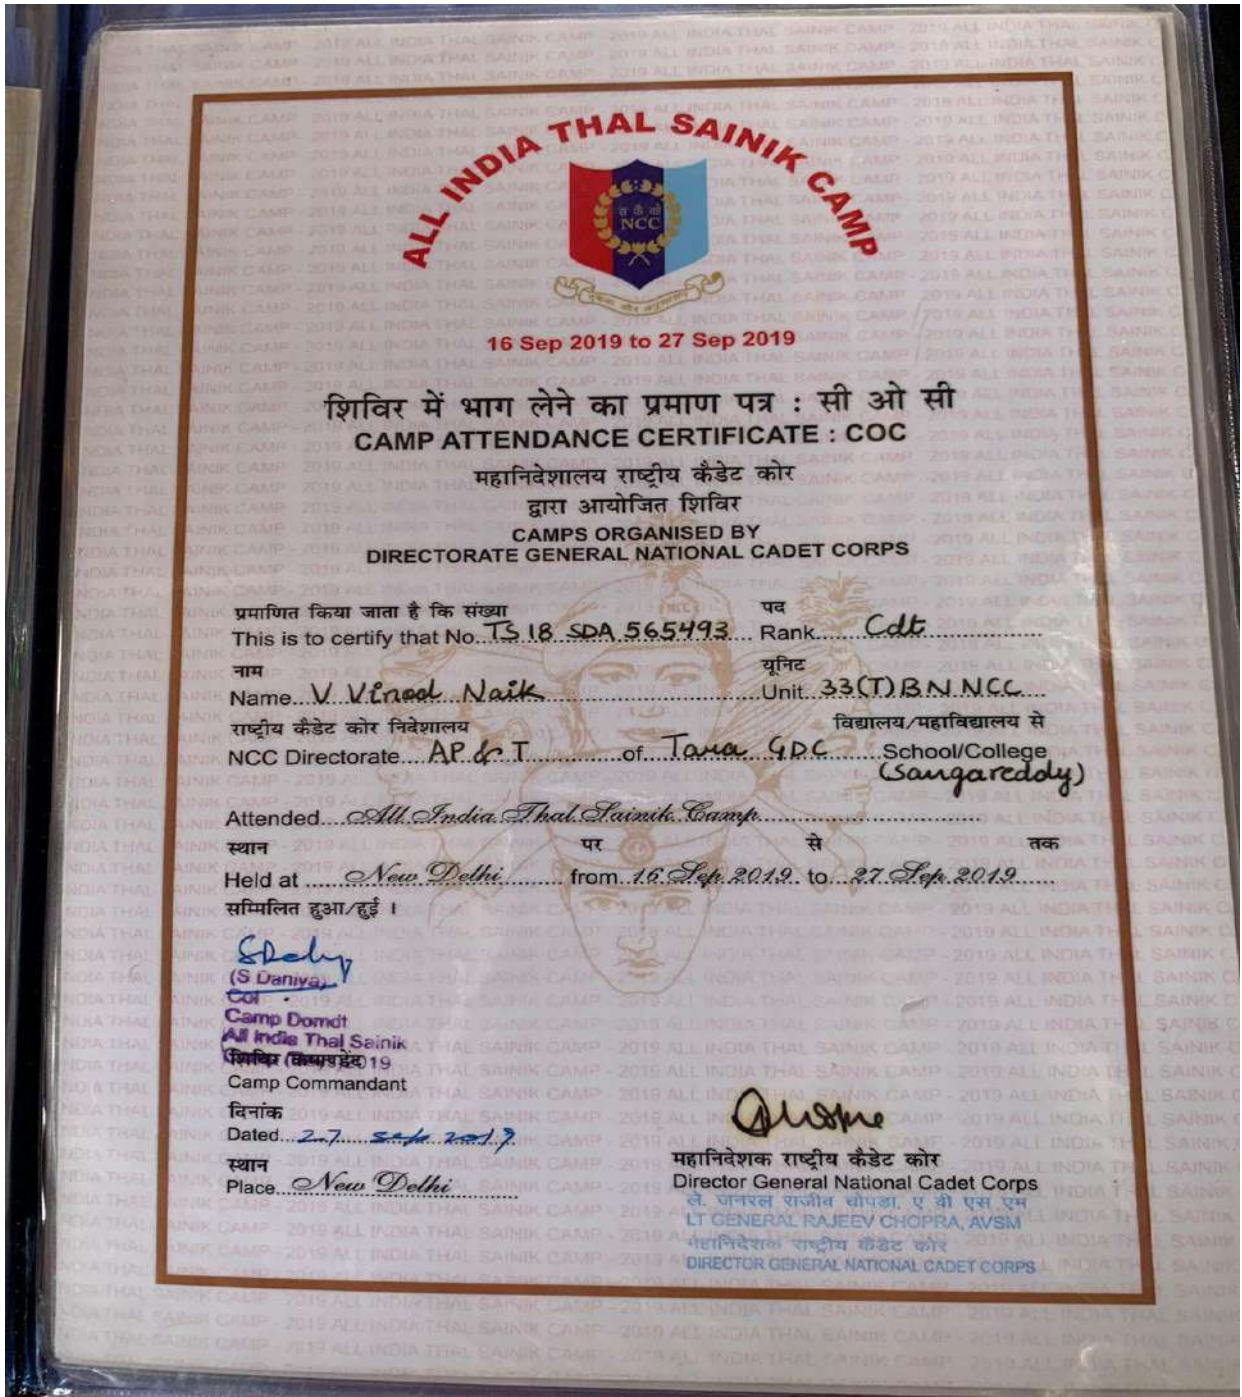 ALL INDIA THAL SAINIK CAMP
NCC
एकता और अनुशासन
16 Sep 2019 to 27 Sep 2019
शिविर में भाग लेने का प्रमाण पत्र : सी ओ सी
CAMP ATTENDANCE CERTIFICATE : COC
महानिदेशालय राष्ट्रीय कैडेट कोर
द्वारा आयोजित शिविर
CAMPS ORGANISED BY
DIRECTORATE GENERAL NATIONAL CADET CORPS
प्रमाणित किया जाता है कि संख्या पद
This is to certify that No. TS 18 SDA 565493 Rank Cdt
नाम यूनिट
Name V Vinod Naik Unit 33(T) BN NCC
राष्ट्रीय कैडेट कोर निदेशालय विद्यालय/महाविद्यालय से
NCC Directorate AP & T of Tara GDC School/College
(Sangareddy)
Attended All India Thal Sainik Camp
स्थान पर से तक
Held at New Delhi from 16 Sep 2019 to 27 Sep 2019
सम्मिलित हुआ/हुई ।
(S Daniya)
Col
Camp Domdt
All India Thal Sainik
2019
Camp Commandant
दिनांक
Dated 27 Sep 2019
स्थान
Place New Delhi
महानिदेशक राष्ट्रीय कैडेट कोर
Director General National Cadet Corps
ले. जनरल राजीव चोपडा, ए वी एस एम
LT GENERAL RAJEEV CHOPRA, AVSM
महानिदेशक राष्ट्रीय कैडेट कोर
DIRECTOR GENERAL NATIONAL CADET CORPS